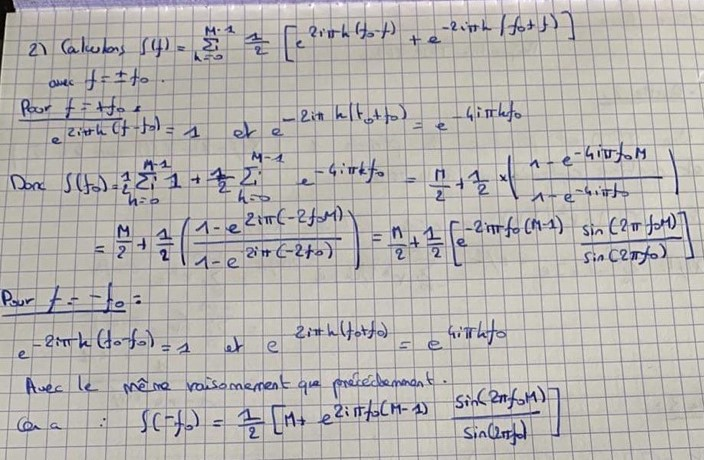 2) Calculons S(f) = \sum_{k=0}^{M-1} \frac{1}{2} [e^{2iπk(f_0-f)} + e^{-2iπk(f_0+f)}]
avec f = ±f_0.
Pour f = +f_0 :
e^{2iπk(f-f_0)} = 1 et e^{-2iπk(f_0+f_0)} = e^{-4iπkf_0}
Donc S(f_0) = \frac{1}{2} \sum_{k=0}^{M-1} 1 + \frac{1}{2} \sum_{k=0}^{M-1} e^{-4iπkf_0} = \frac{M}{2} + \frac{1}{2} × (\frac{1-e^{-4iπf_0M}}{1-e^{-4iπf_0}})
= \frac{M}{2} + \frac{1}{2} (\frac{1-e^{2iπ(-2f_0M)}}{1-e^{2iπ(-2f_0)}}) = \frac{M}{2} + \frac{1}{2} [e^{-2iπf_0(M-1)} \frac{sin(2πf_0M)}{sin(2πf_0)}]
Pour f = -f_0 :
e^{-2iπk(f_0-f_0)} = 1 et e^{2iπk(f_0+f_0)} = e^{4iπkf_0}
Avec le même raisonnement que précédemment.
On a : S(-f_0) = \frac{1}{2} [M + e^{2iπf_0(M-1)} \frac{sin(2πf_0M)}{sin(2πf_0)}]